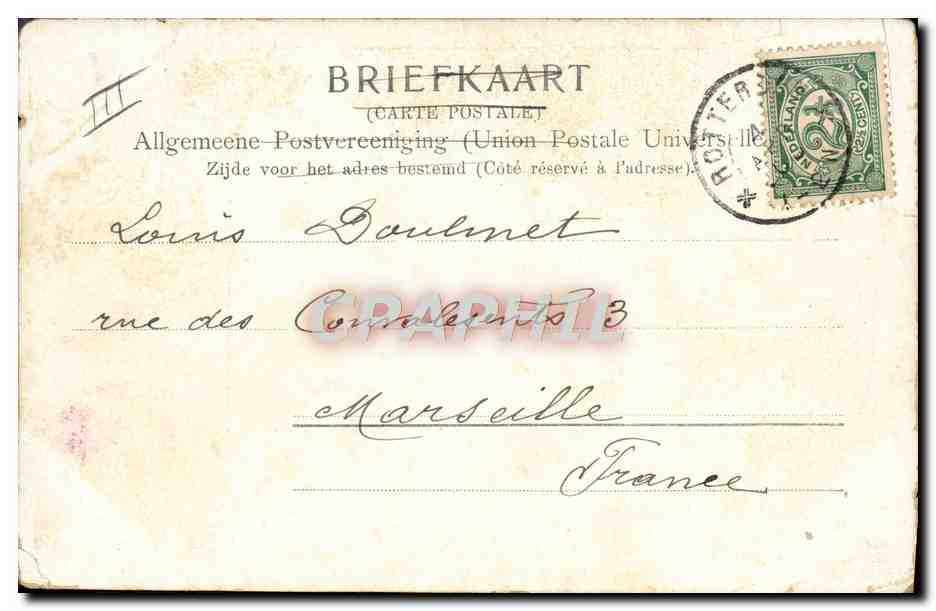 III
BRIEFKAART
(CARTE POSTALE)
Allgemeene Postvereeniging (Union Postale Universelle
Zijde voor het adres bestemd (Côté réservé à l'adresse).
ROTTER
NEDERLAND
2½ CENT
Louis Doulmet
rue des Convalesents 3
CPAPHIL
Marseille
France